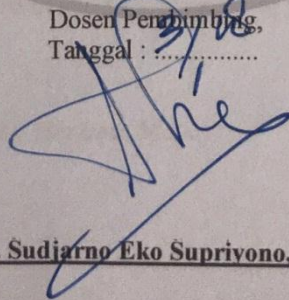 Dosen Pembimbing,
Tanggal : ................
Sudjarno Eko Supriyono.